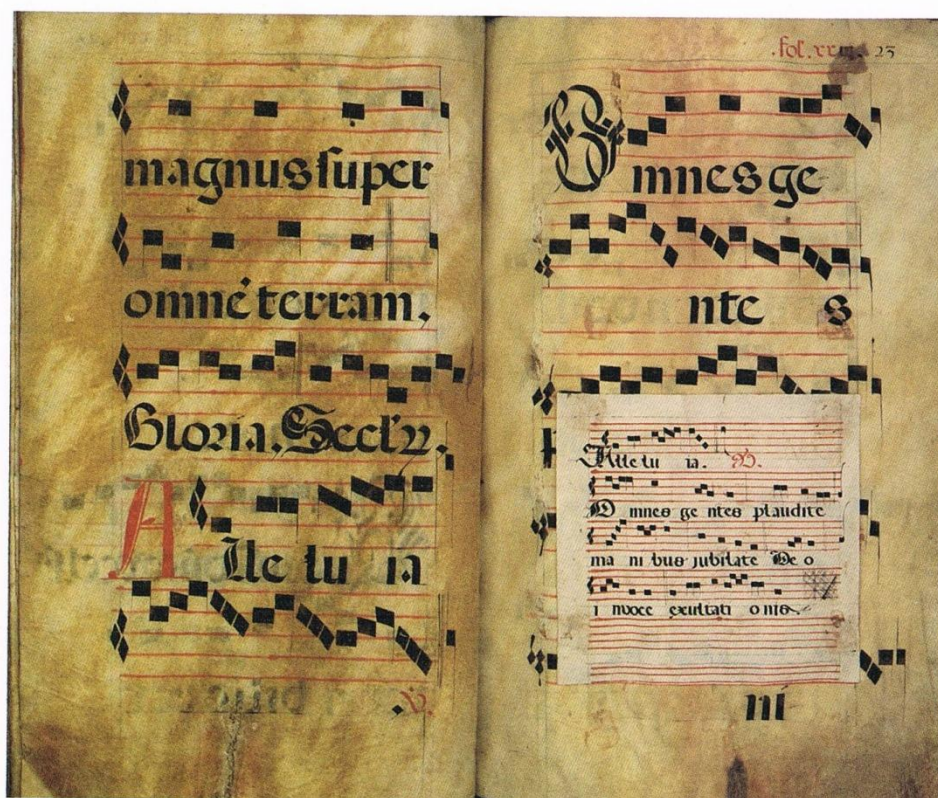 magnus super
omnē terram.
Gloria. Secl'rz.
Alle lu ia
℣.
.fol. xxiii. 23
Omnes ge
nte s
Alle lu ia. ℣.
O mnes ge ntes plaudite
ma ni bus jubilate De o
i nvoce exultati onis.
ni